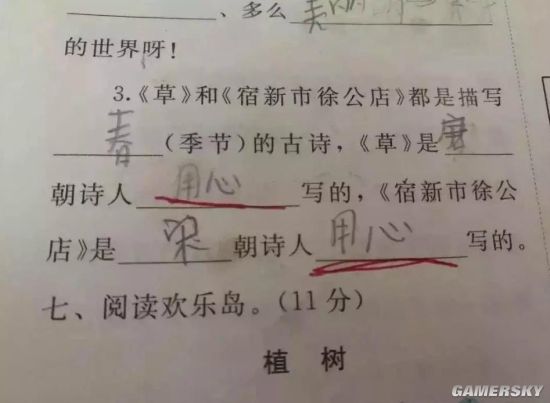 、多么
的世界呀!
3.《草》和《宿新市徐公店》都是描写
春(季节)的古诗,《草》是唐
朝诗人用心写的,《宿新市徐公
店》是朝诗人用心写的。
七、阅读欢乐岛。(11分)
植 树
GAMERSKY